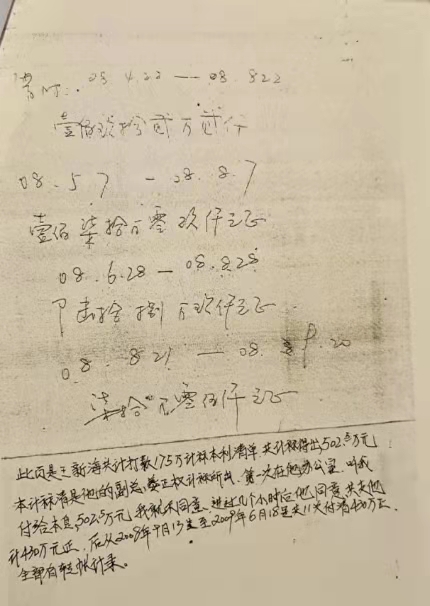 08.4.22 — 08.8.22
壹佰玖拾贰万贰仟
08.5.7 — 08.8.7
壹佰柒拾万零玖仟元正
08.6.28 — 08.8.28
拾捌万玖仟元正
08.8.21 — 08.9.20
柒拾万零伍仟元正
此页是王新海共计打款175万计称本利清单 共计称得出502.5万元
本计称清是他的副总 权计称所出 第一次在他办公室 叫我
付给本息502.5万元 我就不同意 进过几个小时后他同意共支他
计430万元正 后从2008年9月13号至2009年6月18号共11次付清430万正
全部有转帐计录。